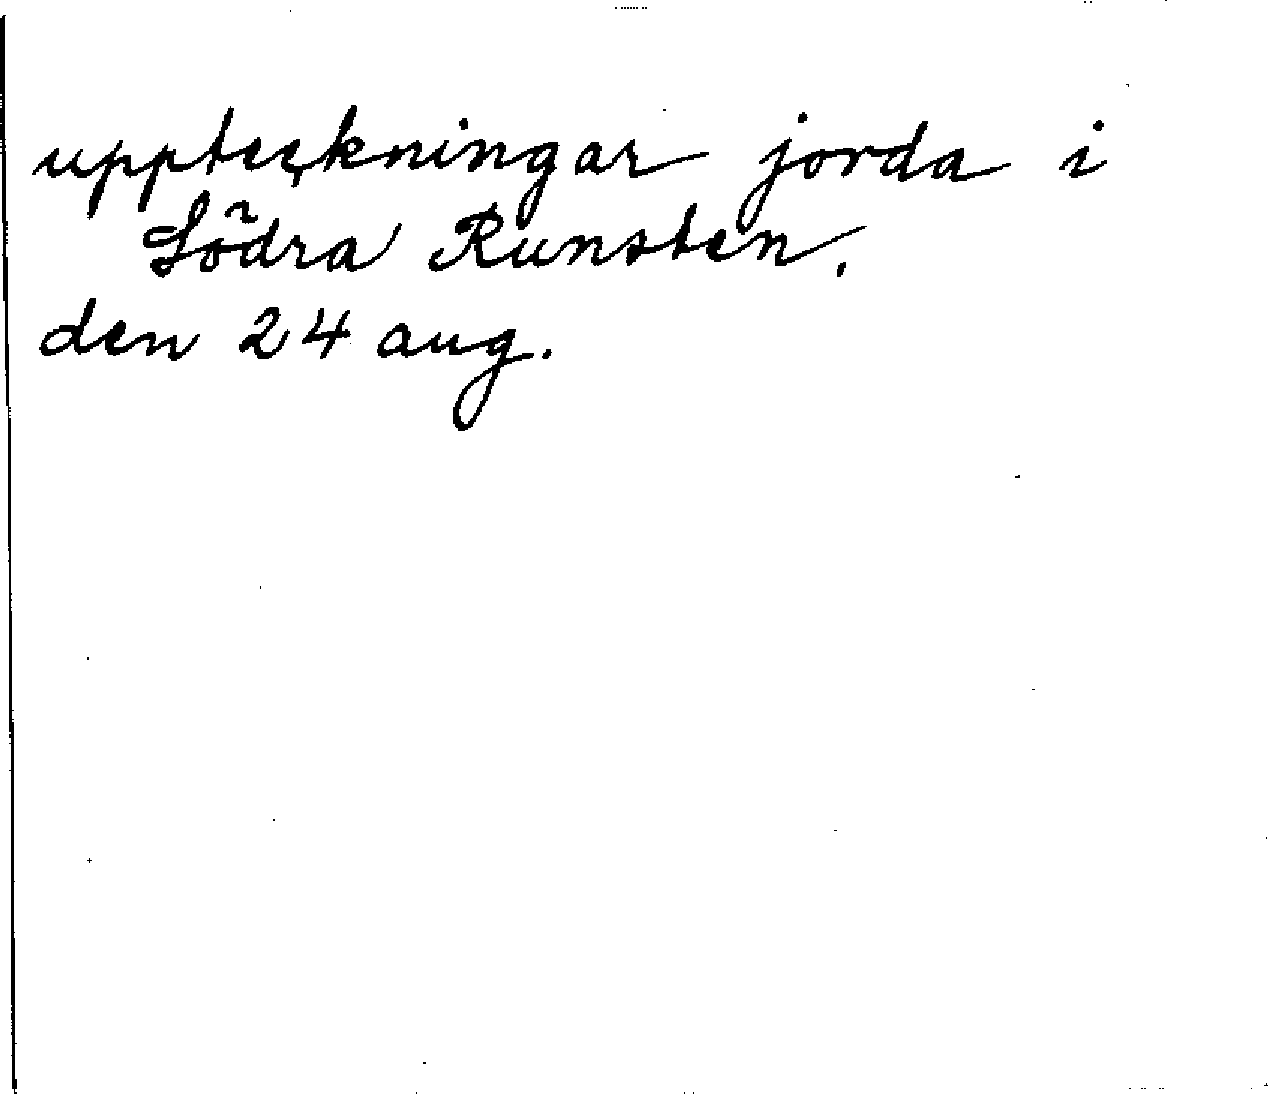 uppteckningar jorda i
Södra Runsten.
den 24 aug.